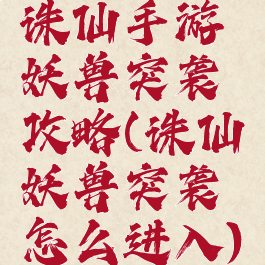 诛仙手游
妖兽突袭
攻略(诛仙
妖兽突袭
怎么进入)